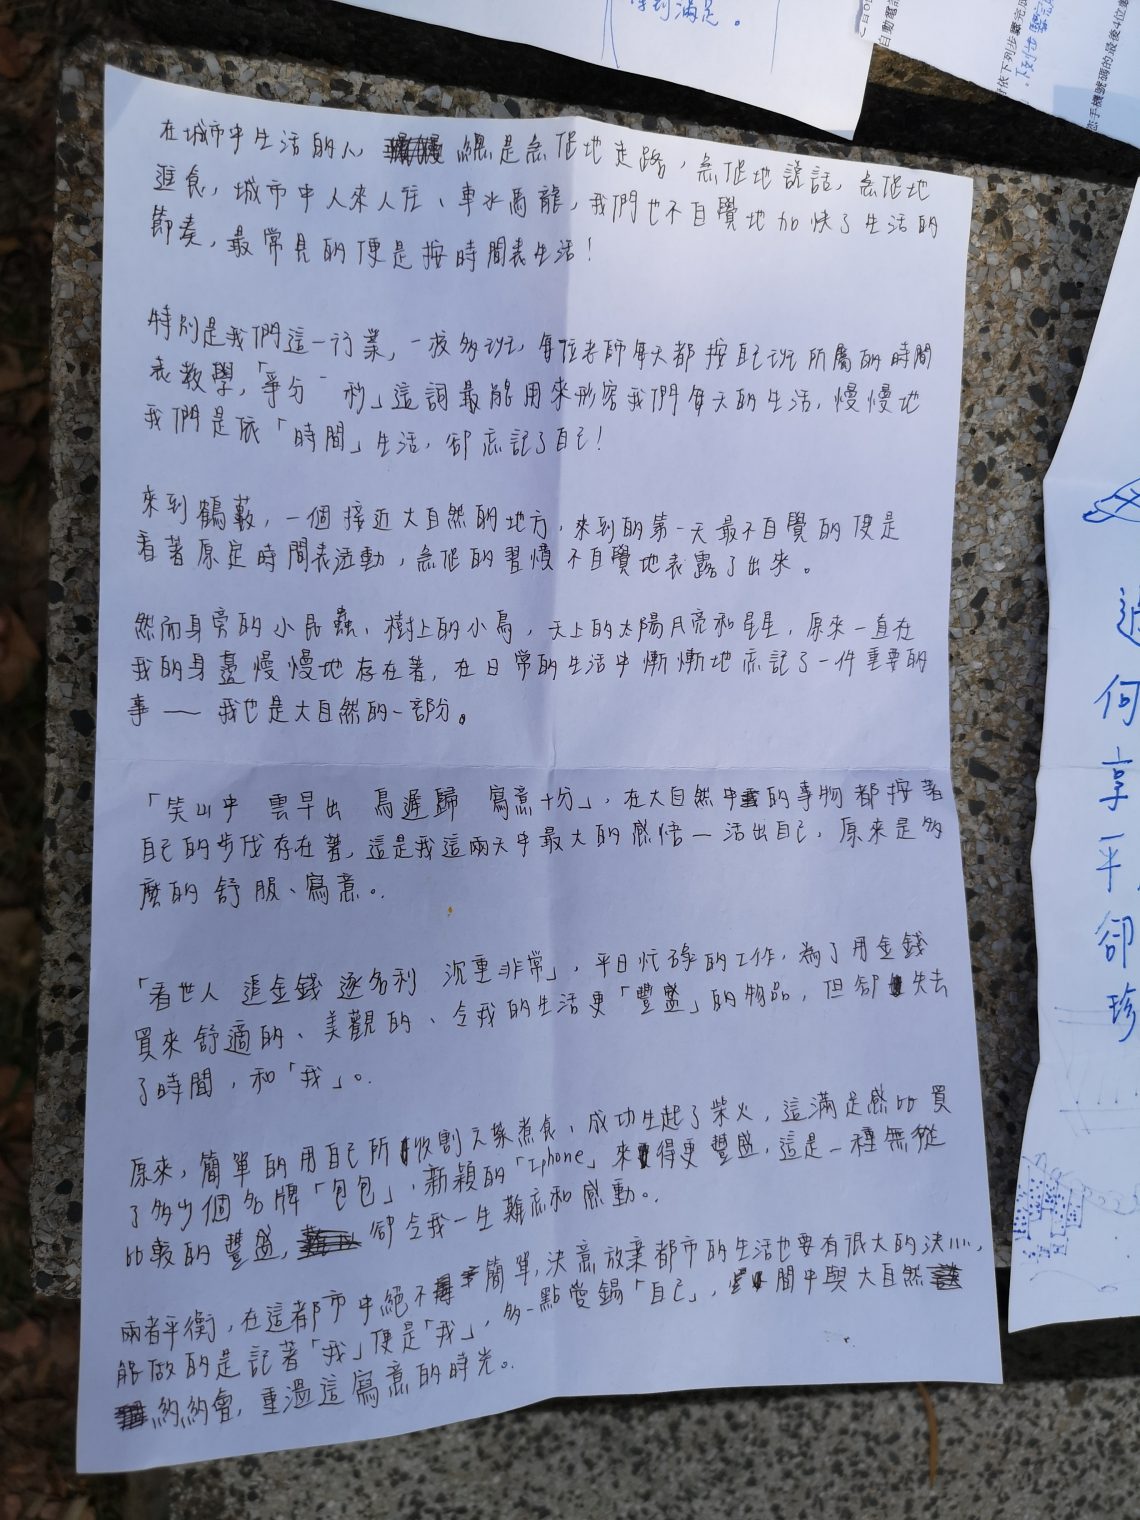 得到滿足。
在城市中生活的人 總是急促地走路，急促地說話，急促地
進食，城市中人來人往、車水馬龍，我們也不自覺地加快了生活的
節奏，最常見的便是按時間表生活！
特別是我們這一行業，一校多班，每位老師每天都按自己班所屬的時間
表教學，「爭分 秒」這詞最能用來形容我們每天的生活，慢慢地
我們是依「時間」生活，卻忘記了自己！
來到鶴藪，一個接近大自然的地方，來到的第一天最不自覺的便是
看著原定時間表活動，急促的習慢不自覺地表露了出來。
然而身旁的小昆蟲、樹上的小鳥，天上的太陽月亮和星星，原來一直在
我的身邊慢慢地存在著，在日常的生活中慚慚地忘記了一件重要的
事 —— 我也是大自然的一部分。
「笑山中 雲早出 鳥遲歸 寫意十分」，在大自然中的事物都按著
自己的步伐存在著，這是我這兩天中最大的感悟－活出自己，原來是多
麼的舒服、寫意。
「看世人 追金錢 逐名利 沉重非常」，平日忙碌的工作，為了用金錢
買來舒適的、美觀的、令我的生活更「豐盛」的物品，但卻失去
了時間，和「我」。
原來，簡單的用自己所收割之菜煮食、成功生起了柴火，這滿足感比買
了多少個名牌「包包」，新穎的「Iphone」來得更豐盛，這是一種無從
比較的豐盛，卻令我一生難忘和感動。
兩者平衡，在這都市中絕不簡單，決意放棄都市的生活也要有很大的決心，
能做的是記著「我」便是「我」，多一點愛錫「自己」， 間中與大自然
約約會，重過這寫意的時光。
何享平卻珍
自動電話
依下列步驟完成
手機號碼的最後4位數